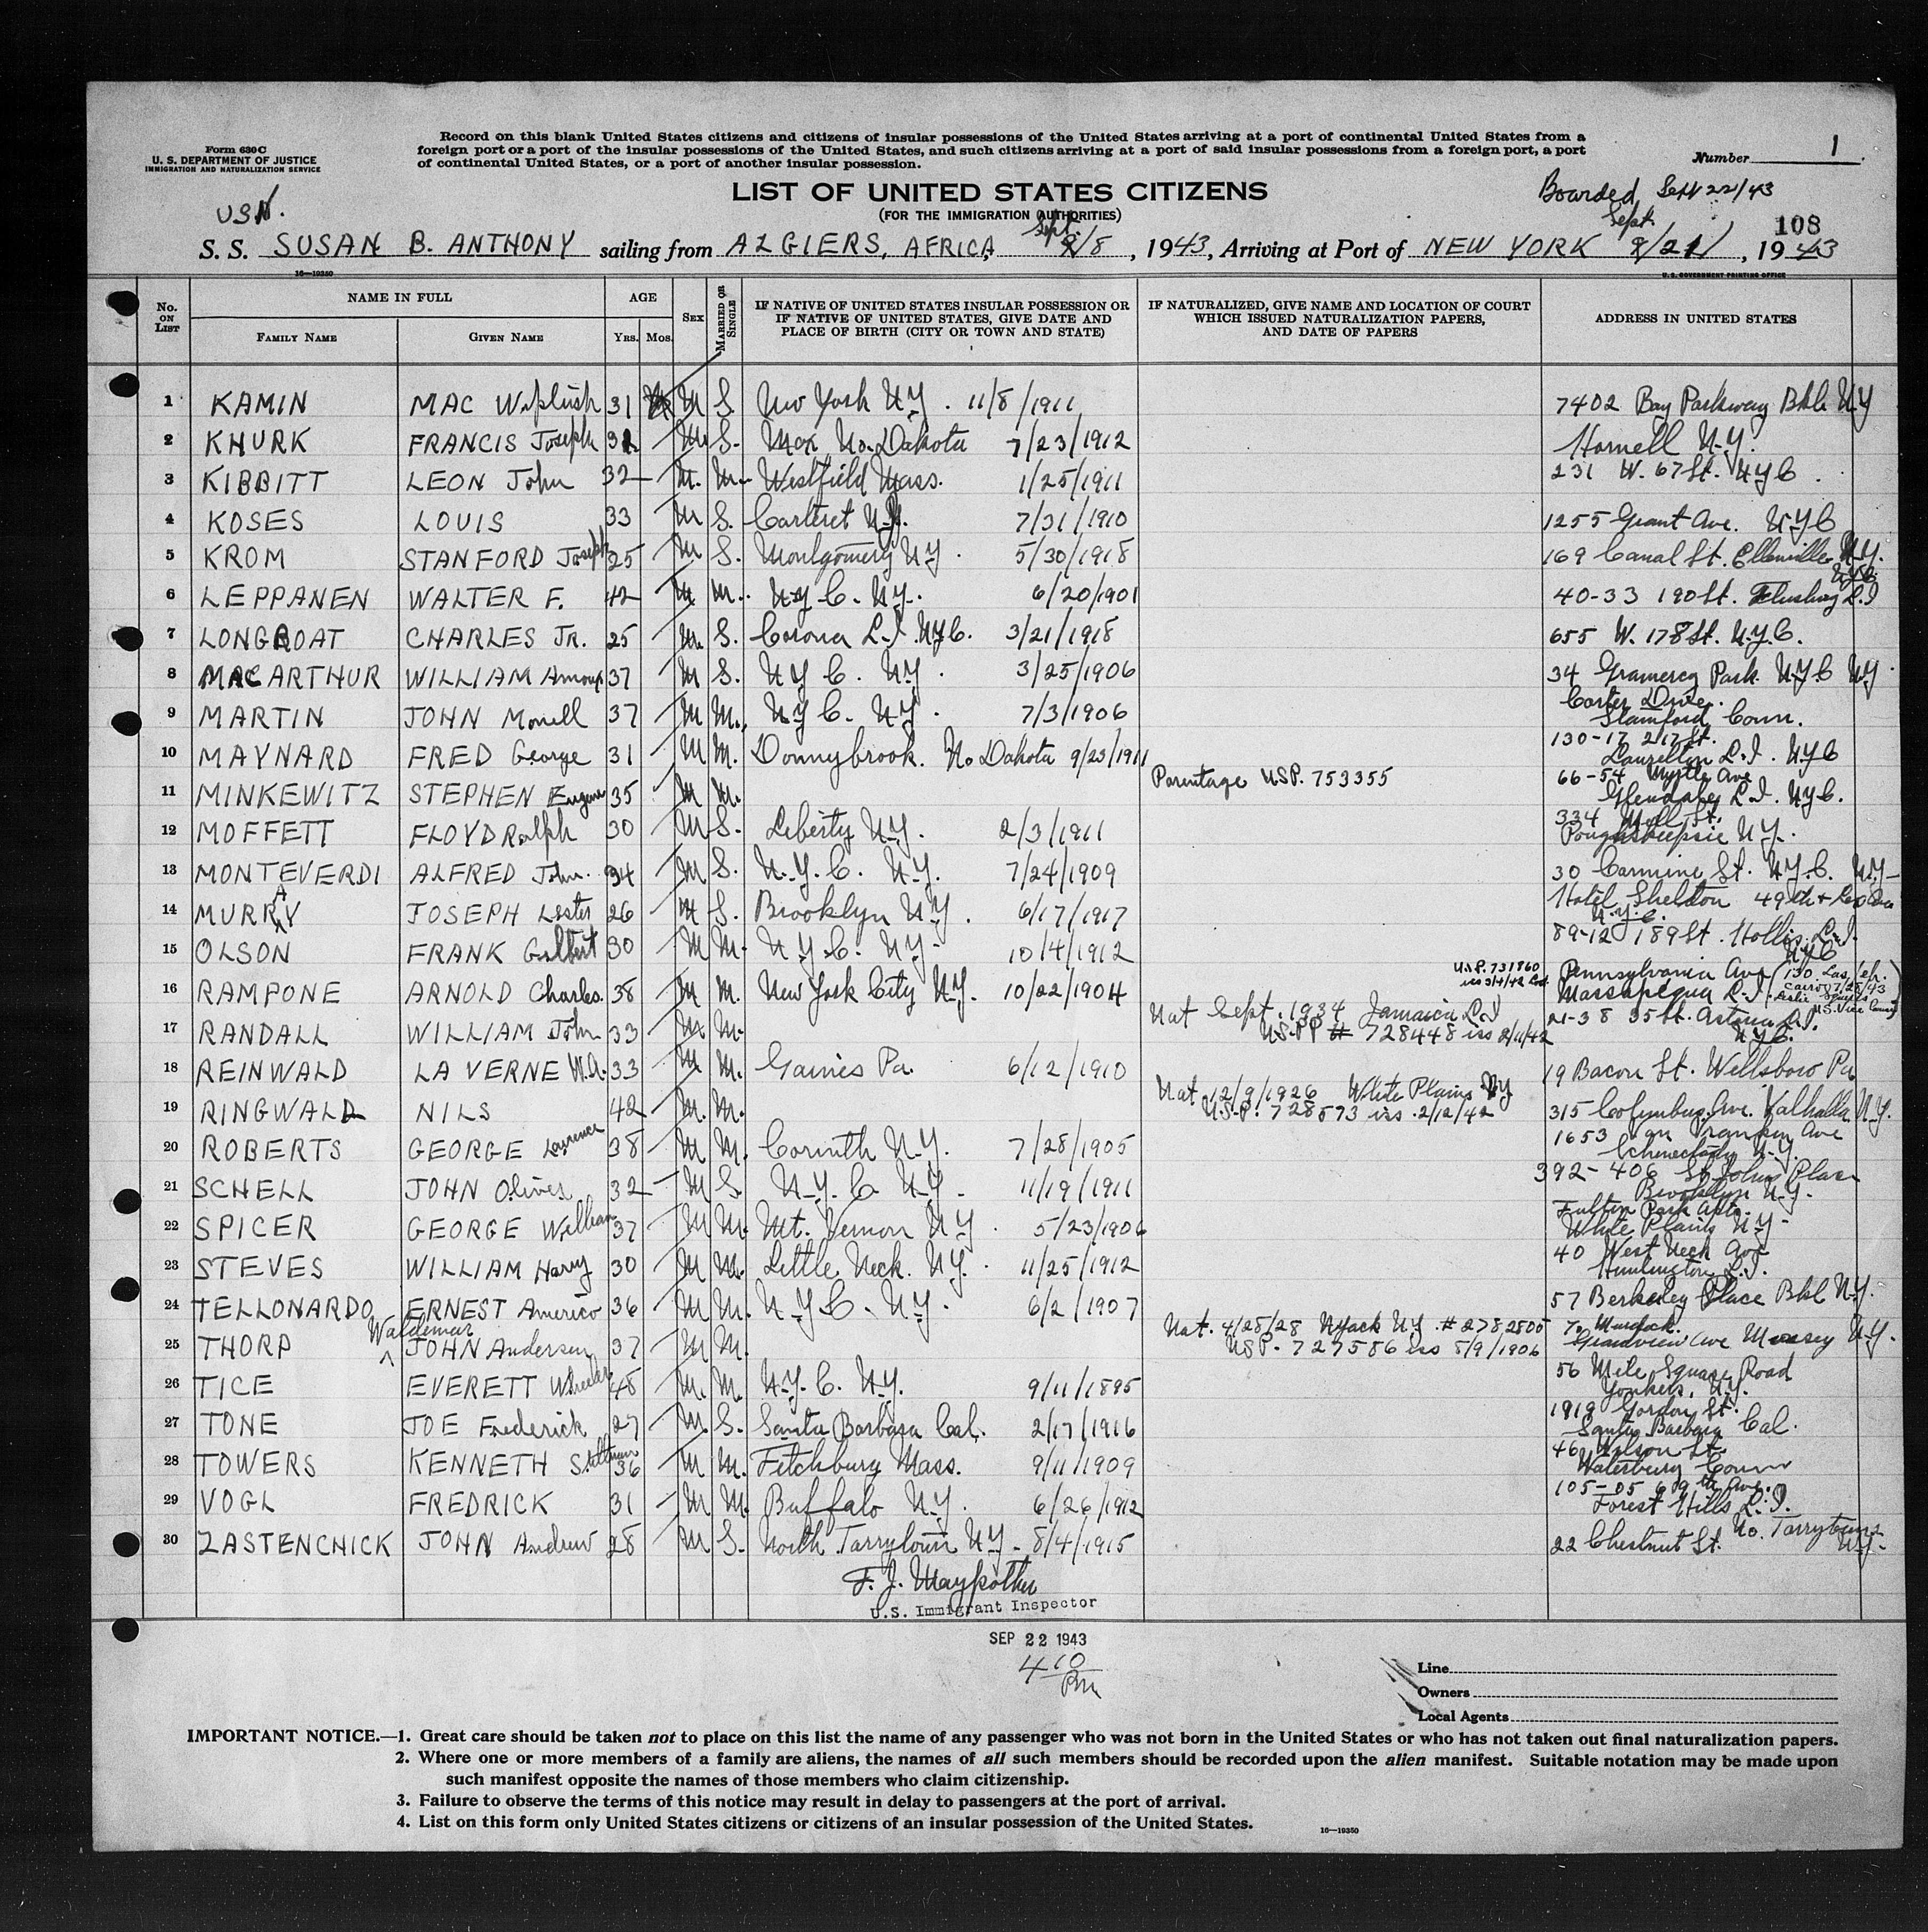 Form 630C
U. S. DEPARTMENT OF JUSTICE
IMMIGRATION AND NATURALIZATION SERVICE
Record on this blank United States citizens and citizens of insular possessions of the United States arriving at a port of continental United States from a
foreign port or a port of the insular possessions of the United States, and such citizens arriving at a port of said insular possessions from a foreign port, a port
of continental United States, or a port of another insular possession.
Number 1
LIST OF UNITED STATES CITIZENS
(FOR THE IMMIGRATION AUTHORITIES)
Boarded Sept 22/43
108
USN.
Sept. Sept.
S. S. SUSAN B. ANTHONY sailing from ALGIERS, AFRICA, 8/8, 1943, Arriving at Port of NEW YORK 8/21, 1943
16—19350
U. S. GOVERNMENT PRINTING OFFICE
No. ON LIST
NAME IN FULL
FAMILY NAME
GIVEN NAME
AGE
YRS.
MOS.
SEX
MARRIED OR SINGLE
IF NATIVE OF UNITED STATES INSULAR POSSESSION OR
IF NATIVE OF UNITED STATES, GIVE DATE AND
PLACE OF BIRTH (CITY OR TOWN AND STATE)
IF NATURALIZED, GIVE NAME AND LOCATION OF COURT
WHICH ISSUED NATURALIZATION PAPERS,
AND DATE OF PAPERS
ADDRESS IN UNITED STATES
1 KAMIN MAC 31 M S. New York N.Y. 11/8/1911 7402 Bay Parkway Bkl N.Y
2 KHURK FRANCIS Joseph M. S. No. Dakota 7/23/1912 Hornell N.Y.
3 KIBBITT LEON John 32 M. M. Westfield Mass. 1/25/1911 231 W. 67 St. N.Y.C.
4 KOSES LOUIS 33 M S. Carteret 7/31/1910 1255 Grant Ave. N.Y.C
5 KROM STANFORD Joseph 25 M S. Montgomery N.Y. 5/30/1918 169 Canal St. Ellenville N.Y.
6 LEPPANEN WALTER F. 42 M M. N.Y.C. N.Y. 6/20/1901 40-33 190 St. Flushing L.I N.Y.C.
7 LONGBOAT CHARLES JR. 25 M. S. Corona L.I. N.Y.C. 3/21/1918 655 W. 178 St. N.Y.C.
8 MACARTHUR WILLIAM 37 M S. N.Y.C. N.Y. 3/25/1906 34 Gramercy Park N.Y.C N.Y
9 MARTIN JOHN 37 M M. N.Y.C. N.Y. 7/3/1906 Carter Drive.
Stamford Conn.
10 MAYNARD FRED George 31 M M. Donnybrook. No Dakota 9/23/1911 130-17 217 St.
Laurelton L.I. N.Y.C
11 MINKEWITZ STEPHEN Eugene 35 M M. Parentage U.S.P. 753355 66-54 Myrtle Ave
Glendale, L.I. N.Y.C.
12 MOFFETT FLOYD Ralph 30 M S. Liberty N.Y. 2/3/1911 334 St.
Poughkeepsie N.Y.
13 MONTEVERDI ALFRED John 34 M S. N.Y.C. N.Y. 7/24/1909 30 Carmine St. N.Y.C. N.Y
14 MURRAY JOSEPH Lester 26 M S. Brooklyn N.Y. 6/17/1917 Hotel Sheldon 49th +
N.Y.C.
15 OLSON FRANK 30 M M. N.Y.C. N.Y. 10/4/1912 89-12 189 St. Hollis L.I.
N.Y.C
16 RAMPONE ARNOLD Charles 38 M M. New York City N.Y. 10/22/1904 U.S.P. 731860 iss 3/4/42 Pennsylvania Ave
Massapequa L.I.
17 RANDALL WILLIAM John 33 M. M. Nat Sept. 1934 Jamaica L.I
U.S.PP # 728448 iss 2/11/42 21-38 35 St. Astoria L.I.
N.Y.C.
18 REINWALD LA VERNE W.A. 33 M M. Gaines Pa. 6/12/1910 19 Bacon St. Wellsboro Pa
19 RINGWALD NILS 42 M. M. Nat 12/9/1926 White Plains N.Y
U.S.P. 728573 iss. 2/12/42 315 Columbus Ave. Valhalla N.Y.
20 ROBERTS GEORGE Lawrence 38 M M. Corinth N.Y. 7/28/1905 1653 Ave
Schenectady N.Y.
21 SCHELL JOHN Oliver 32 M S. N.Y.C N.Y. 11/19/1911 392-406 St Johns Place
Brooklyn N.Y.
22 SPICER GEORGE William 37 M M. Mt. Vernon N.Y. 5/23/1906 Fulton Park Apts.
White Plains N.Y.
23 STEVES WILLIAM Harry 30 M M. Little Neck. N.Y. 11/25/1912 40 West Neck Ave
Huntington L.I.
24 TELLONARDO ERNEST Americo 36 M M. N.Y.C. N.Y. 6/2/1907 57 Berkeley Place Bkl N.Y.
25 THORP Waldemar JOHN Andersen 37 M M. Nat. 4/28/28 Nyack N.Y. # 2782500
U.S.P. 727586 iss 5/9/1906 Grandview Ave N.Y.
26 TICE EVERETT Wheeler 48 M. M. N.Y.C. N.Y. 9/11/1895 56 Mile Square Road
Yonkers, N.Y.
27 TONE JOE Frederick 27 M. S. Santa Barbara Cal. 2/17/1916 1919 Gordon St.
Santa Barbara Cal.
28 TOWERS KENNETH 36 M M. Fitchburg Mass. 9/11/1909 46 Wilson St.
Waterbury Conn
29 VOGL FREDRICK 31 M M. Buffalo N.Y. 6/26/1912 105-05 69th Ave.
Forest Hills L.I.
30 ZASTENCHICK JOHN Andrew 28 M S. North Tarrytown N.Y. 8/4/1915 22 Chestnut St. No. Tarrytown
N.Y.
F. J. Maypother
U.S. Immigrant Inspector
SEP 22 1943
4 10
PM
Line
Owners
Local Agents
IMPORTANT NOTICE.—1. Great care should be taken not to place on this list the name of any passenger who was not born in the United States or who has not taken out final naturalization papers.
2. Where one or more members of a family are aliens, the names of all such members should be recorded upon the alien manifest. Suitable notation may be made upon
such manifest opposite the names of those members who claim citizenship.
3. Failure to observe the terms of this notice may result in delay to passengers at the port of arrival.
4. List on this form only United States citizens or citizens of an insular possession of the United States.
16—19350